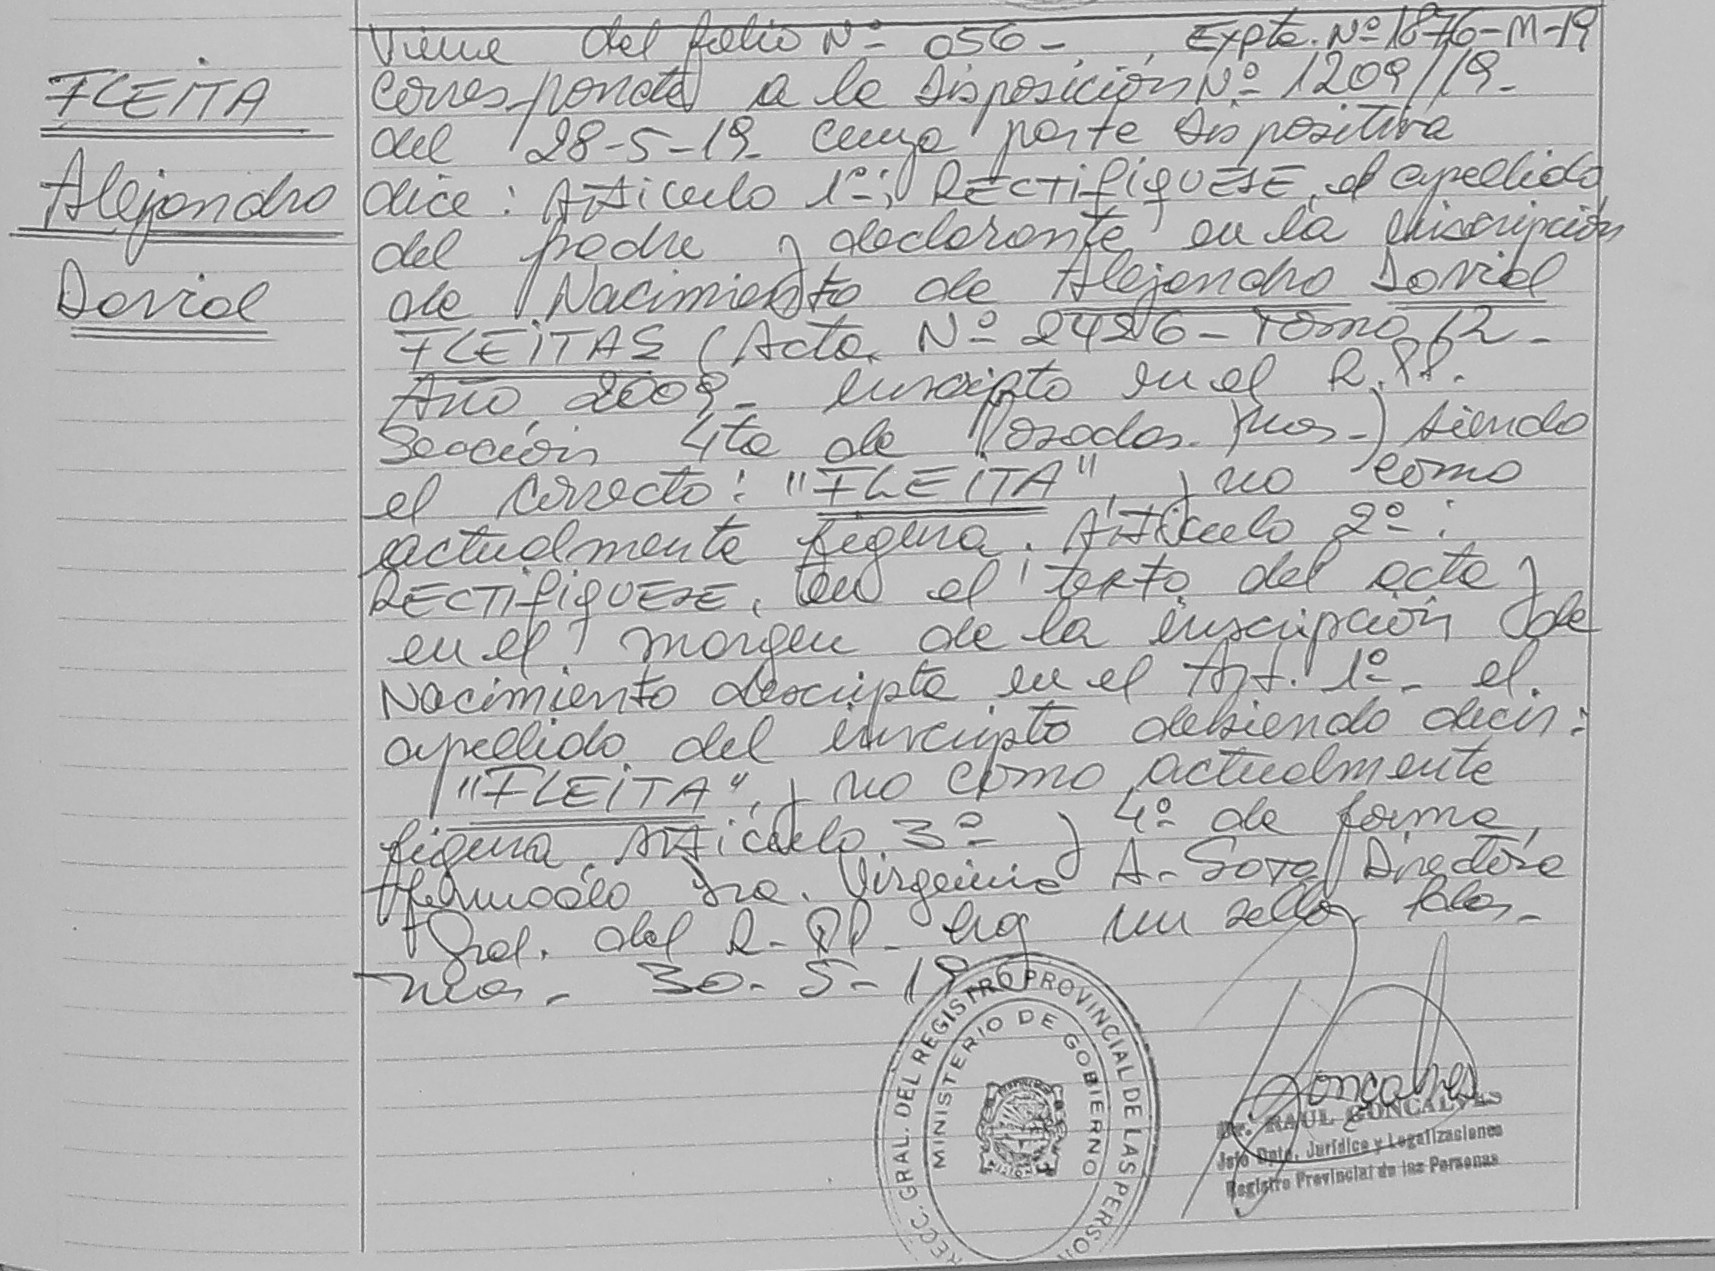 FLEITA
Alejandro
David
Viene del folio Nº 056- Expte. Nº 1876-M-19
corresponde a la Disposición Nº 1209/19-
del 28-5-19- cuya parte Dispositiva
dice: Artículo 1º: RECTIFIQUESE, el apellido
del padre y declarante en la inscripción
de Nacimiento de Alejandro David
FLEITAS (Acta Nº 2426- Tomo 12-
Año 2009- inscripto en el R.PP.
Sección 4ta de Posadas. Mnes-) siendo
el correcto: "FLEITA", y no como
actualmente figura. Artículo 2º:
RECTIFIQUESE, en el texto del acta y
en el margen de la inscripción de
Nacimiento descripta en el Art. 1º- el
apellido del inscripto debiendo decir:
"FLEITA", y no como actualmente
figura. Artículo 3º y 4º de forma
Firmado Sra. Virginia A. Soto Directora
Gral. del R-PP- Hay un sello. Pdas-
Mnes- 30-5-19
DIRECC. GRAL. DEL REGISTRO PROVINCIAL DE LAS PERSON
MINISTERIO DE GOBIERNO
Goncalves
Dr. RAUL GONCALVES
Jefe Dpto. Jurídica y Legalizaciones
Registro Provincial de las Personas